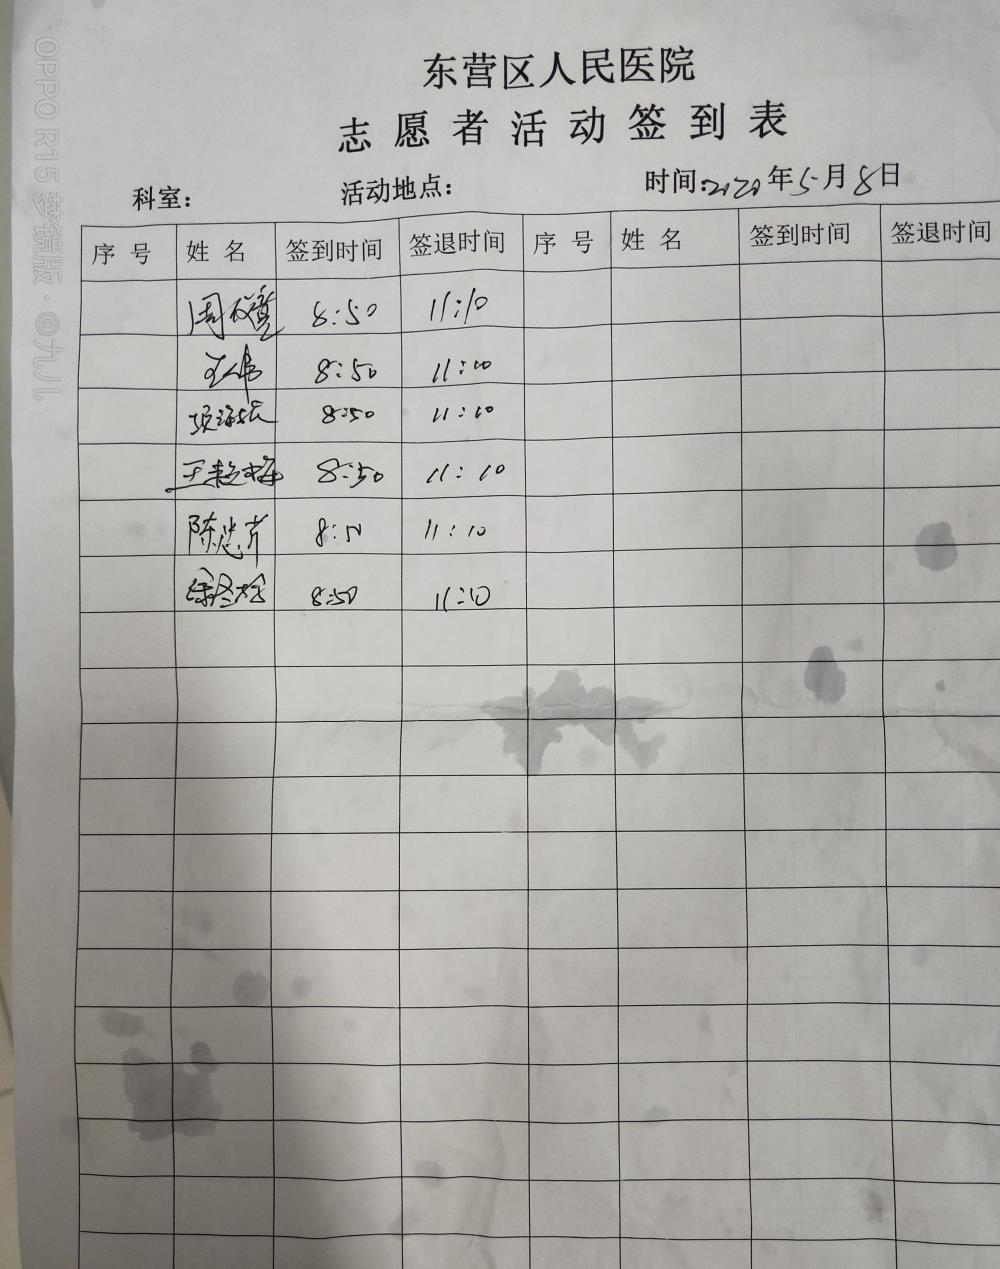 东营区人民医院
志愿者活动签到表
科室： 活动地点： 时间：2020年5月8日
序号 姓名 签到时间 签退时间 序号 姓名 签到时间 签退时间
8:50 11:10
王伟 8:50 11:10
8:50 11:10
8:50 11:10
陈忠芹 8:50 11:10
8:50 11:10
OPPO R15 梦镜版·@九儿